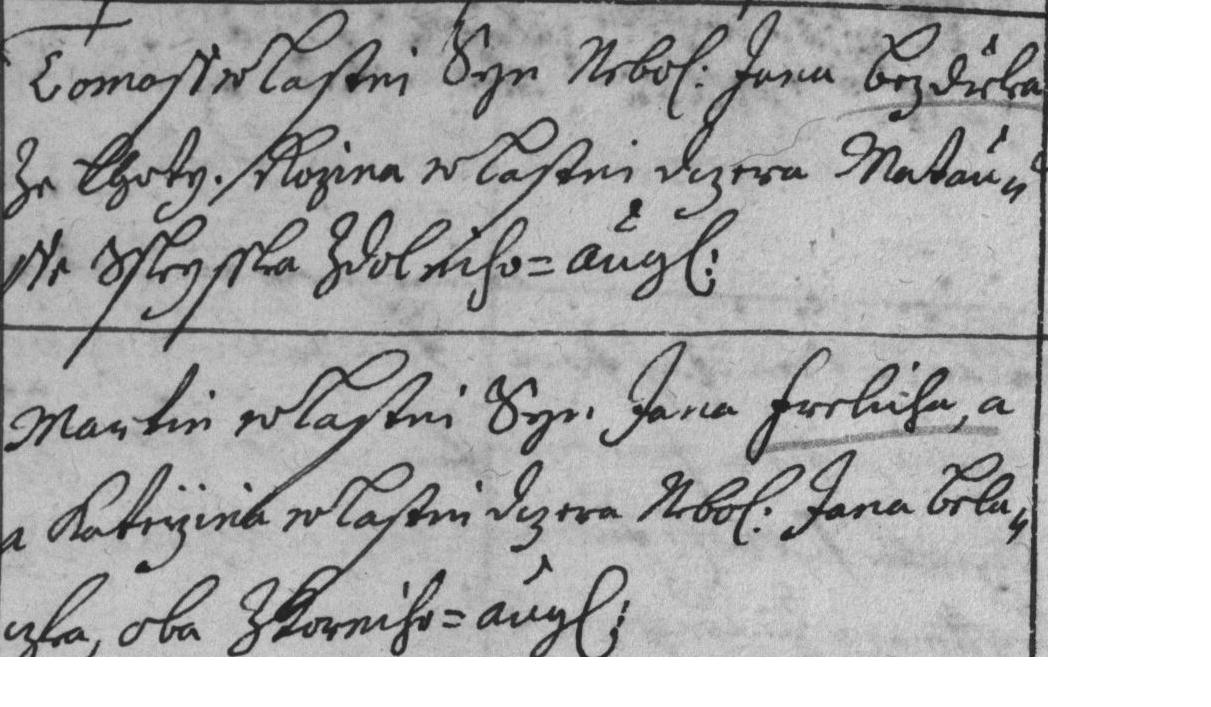 Tomass wlastni Syn Nebol: Jana Bezdieka
Ze Lhoty. Rozina wlastni dczera Mataü„
sse Sskrysska Zdolniho= aügl:
Martin wlastni Syn. Jana Frelicha, a
a Katerzina wlastni dczera Nebol: Jana Bela„
czka, oba Zhorniho= aügl: